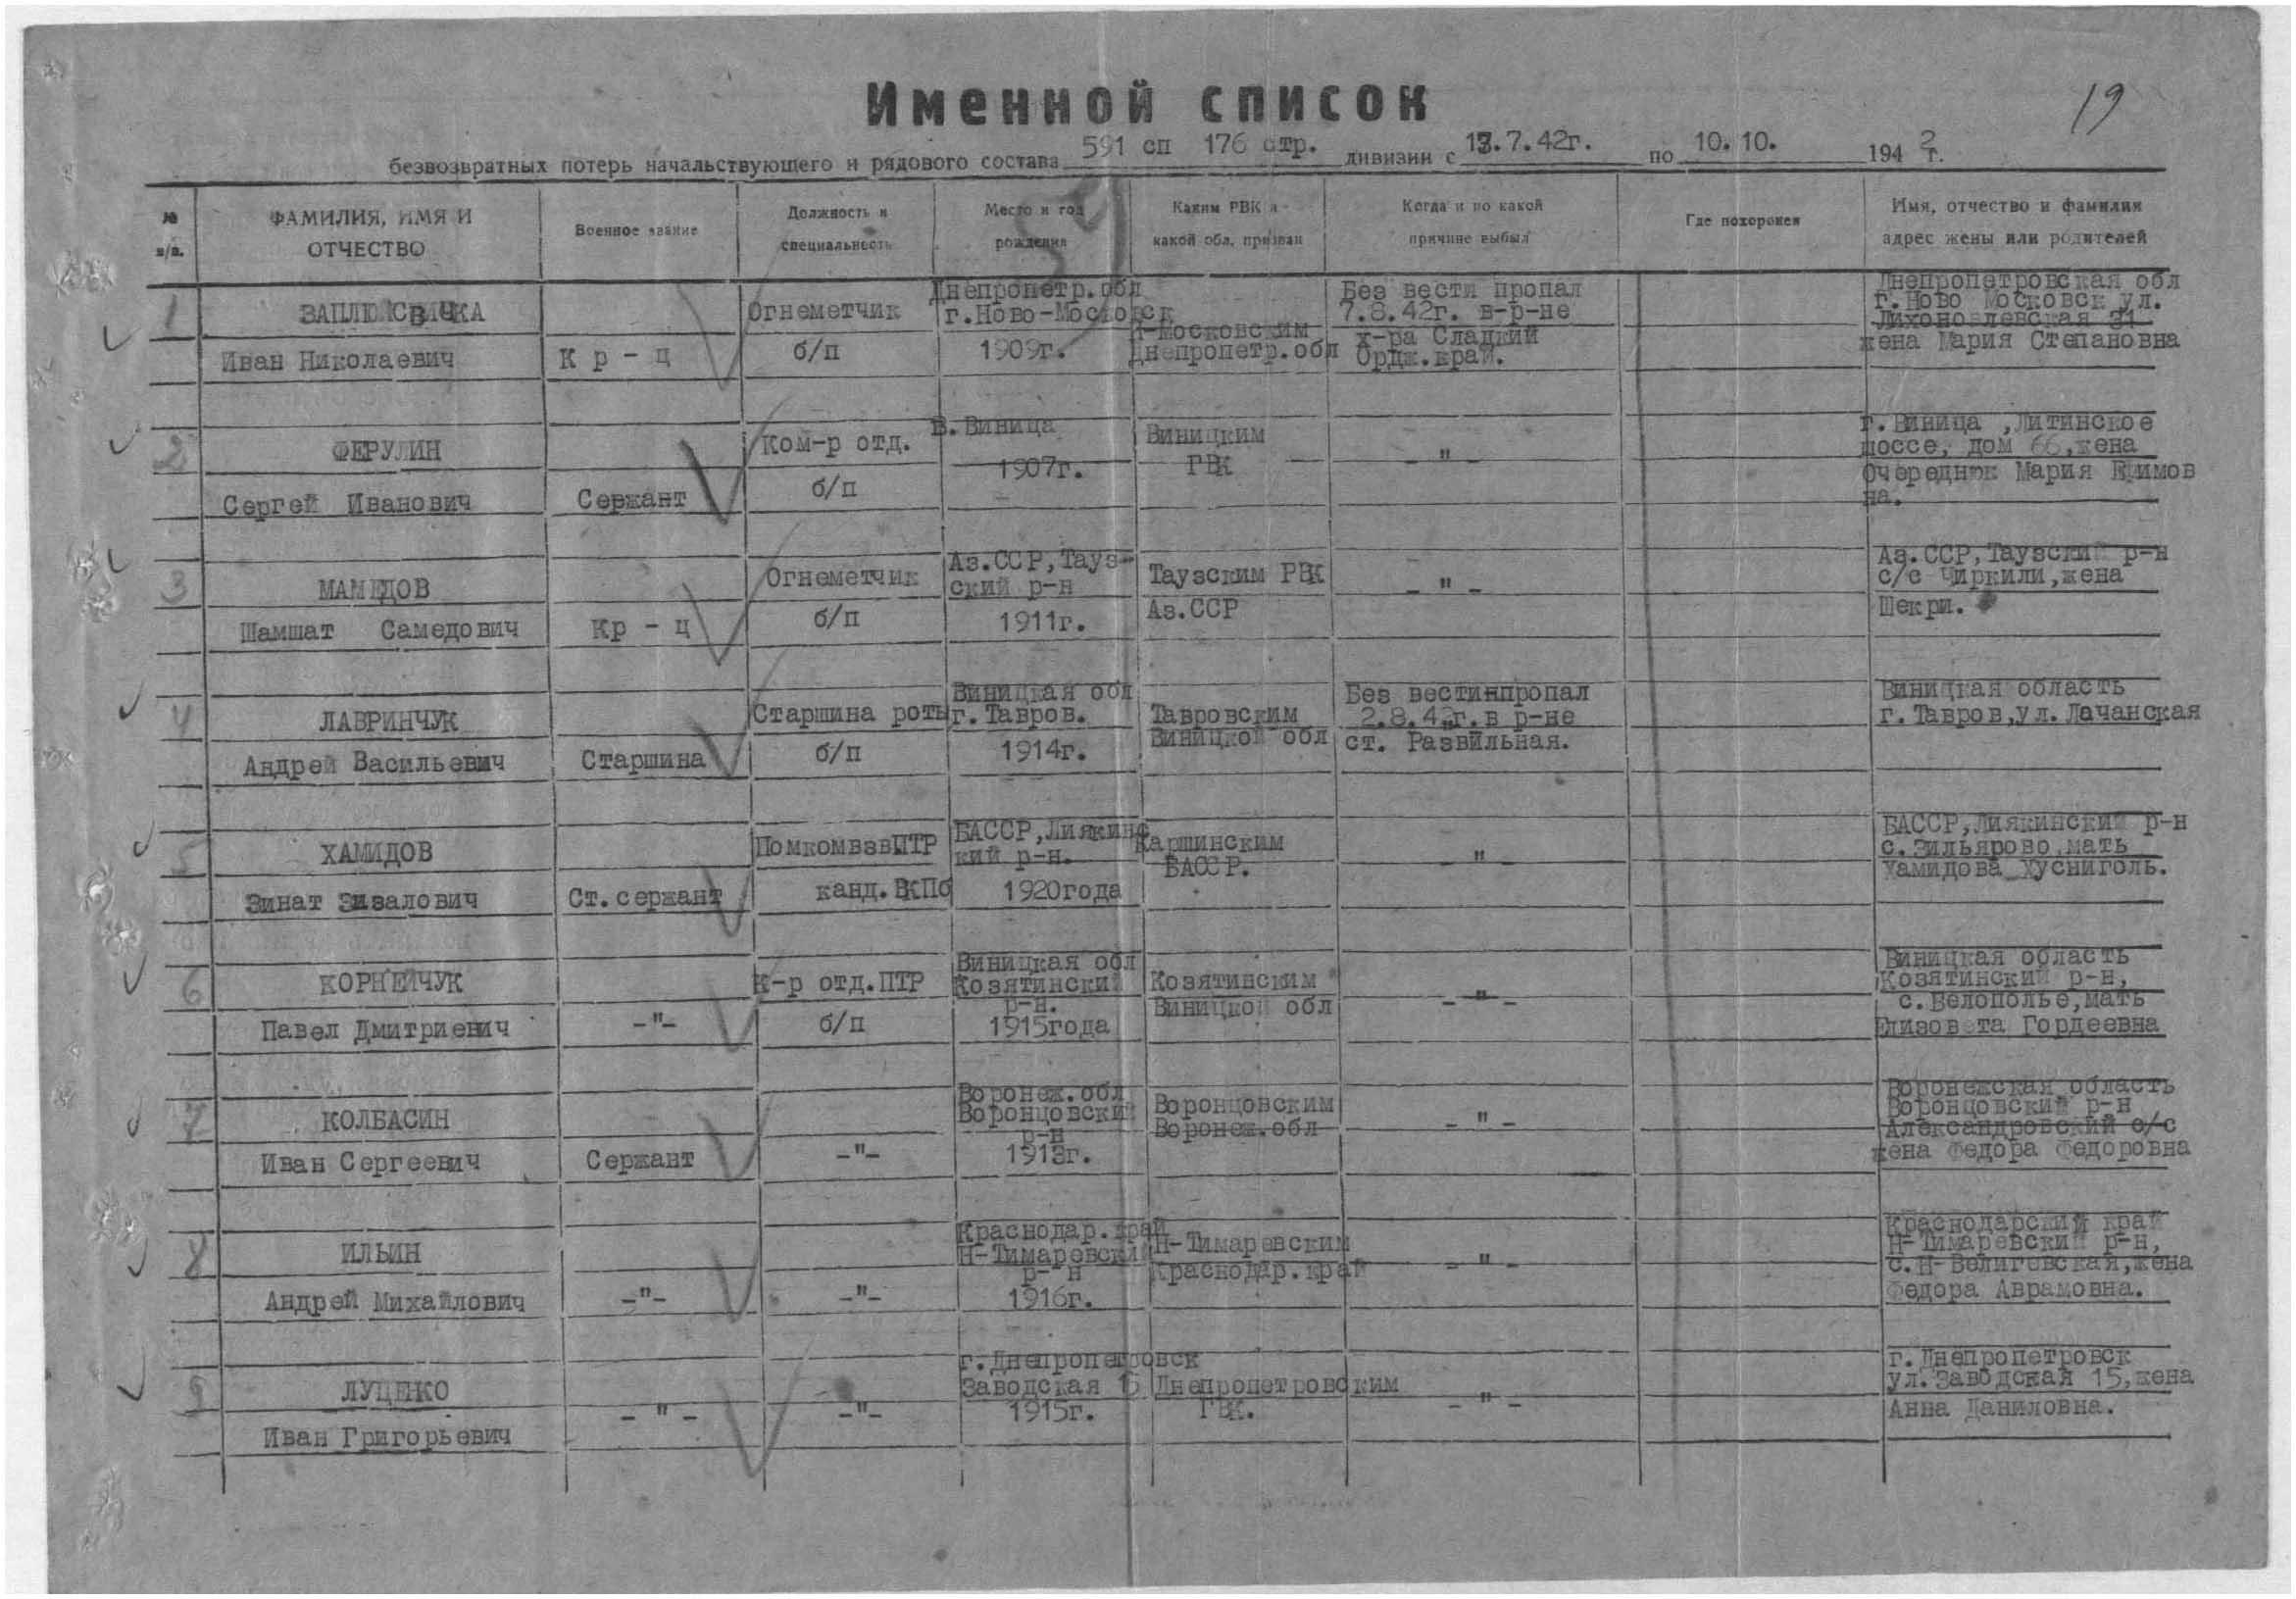 19
Именной список
безвозвратных потерь начальствующего и рядового состава 591 сп 176 стр. дивизии с 13.7.42г. по 10.10. 1942г.
№ п/п.
ФАМИЛИЯ, ИМЯ И ОТЧЕСТВО
Военное звание
Должность и специальность
Место и год рождения
Каким РВК и какой обл. призван
Когда и по какой причине выбыл
Где похоронен
Имя, отчество и фамилия адрес жены или родителей
1
Иван Николаевич
Кр-ц
Огнеметчик
б/п
Днепропетр.обл
г.Ново-Московск
1909г.
Н-Московским
Днепропетр.обл
Без вести пропал
7.8.42г. в-р-не
х-ра Сладкий
Ордж.край.
Днепропетровская обл
г.Ново Московск ул.
31
жена Мария Степановна
2
ФЕРУЛИН
Сергей Иванович
Сержант
Ком-р отд.
б/п
В.Виница
1907г.
Виницким
ГВК
-"-
г.Виница ,Литинское
шоссе, дом 66,жена
Очереднюк Мария Ефимов
на.
3
МАМЕДОВ
Шамшат Самедович
Кр-ц
Огнеметчик
б/п
Аз.ССР,Тауз-
ский р-н
1911г.
Таузским РВК
Аз.ССР
-"-
Аз.ССР,Таузский р-н
с/с Чиркили,жена
Шекри.
4
ЛАВРИНЧУК
Андрей Васильевич
Старшина
Старшина роты
б/п
Виницкая обл
г.Тавров.
1914г.
Тавровским
Виницкой обл
Без вестинпропал
2.8.42г.в р-не
ст. Развильная.
Виницкая область
г.Тавров,ул.Лачанская
5
ХАМИДОВ
Зинат Зизалович
Ст.сержант
ПомкомвзвПТР
канд.ВКПб
БАССР,Лиякинс
кий р-н.
1920года
Каршинским
БАССР.
-"-
БАССР,Лиякинский р-н
с.Зильярово,мать
Хамидова Хусниголь.
6
КОРНЕЙЧУК
Павел Дмитриевич
-"-
К-р отд.ПТР
б/п
Виницкая обл
Козятинский
р-н.
1915года
Козятинским
Виницкой обл
-"-
Виницкая область
Козятинский р-н,
с.Белополье,мать
Елизовета Гордеевна
7
КОЛБАСИН
Иван Сергеевич
Сержант
-"-
Воронеж.обл
Воронцовский
р-н
1913г.
Воронцовским
Воронеж.обл
-"-
Воронежская область
Воронцовский р-н
Александровский с/с
жена Федора Федоровна
8
ИЛЬИН
Андрей Михайлович
-"-
-"-
Краснодар.край
Н-Тимаревский
р-н
1916г.
Н-Тимаревским
Краснодар.край
-"-
Краснодарский край
Н-Тимаревский р-н,
с.Н-Велигевская,жена
Федора Аврамовна.
9
ЛУЦЕНКО
Иван Григорьевич
-"-
-"-
г.Днепропетровск
Заводская 15
1915г.
Днепропетровским
ГВК.
-"-
г.Днепропетровск
ул.Заводская 15,жена
Анна Даниловна.